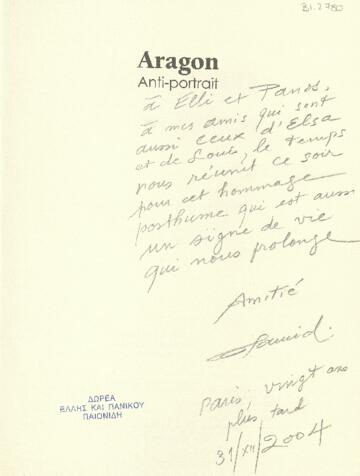 B1.2780
Aragon
Anti-portrait
à Elli et Panos,
à mes amis qui sont
aussi ceux d'Elsa
et de Louis, le temps
nous réunit ce soir
pour cet hommage
posthume qui est aussi
un signe de vie
qui nous prolonge
Amitié
Paris, vingt ans
plus tard
31/XII/2004
ΔΩΡΕΑ
ΕΛΛΗΣ ΚΑΙ ΠΑΝΙΚΟΥ
ΠΑΙΟΝΙΔΗ